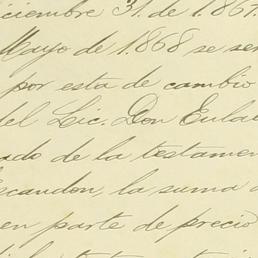 iciembre 31. de 1.867.
Mayo de 1.868 se ser
por esta de cambio
del Lic. Don Eula
ado de la testamen
Escandon, la suma d
en parte de precio